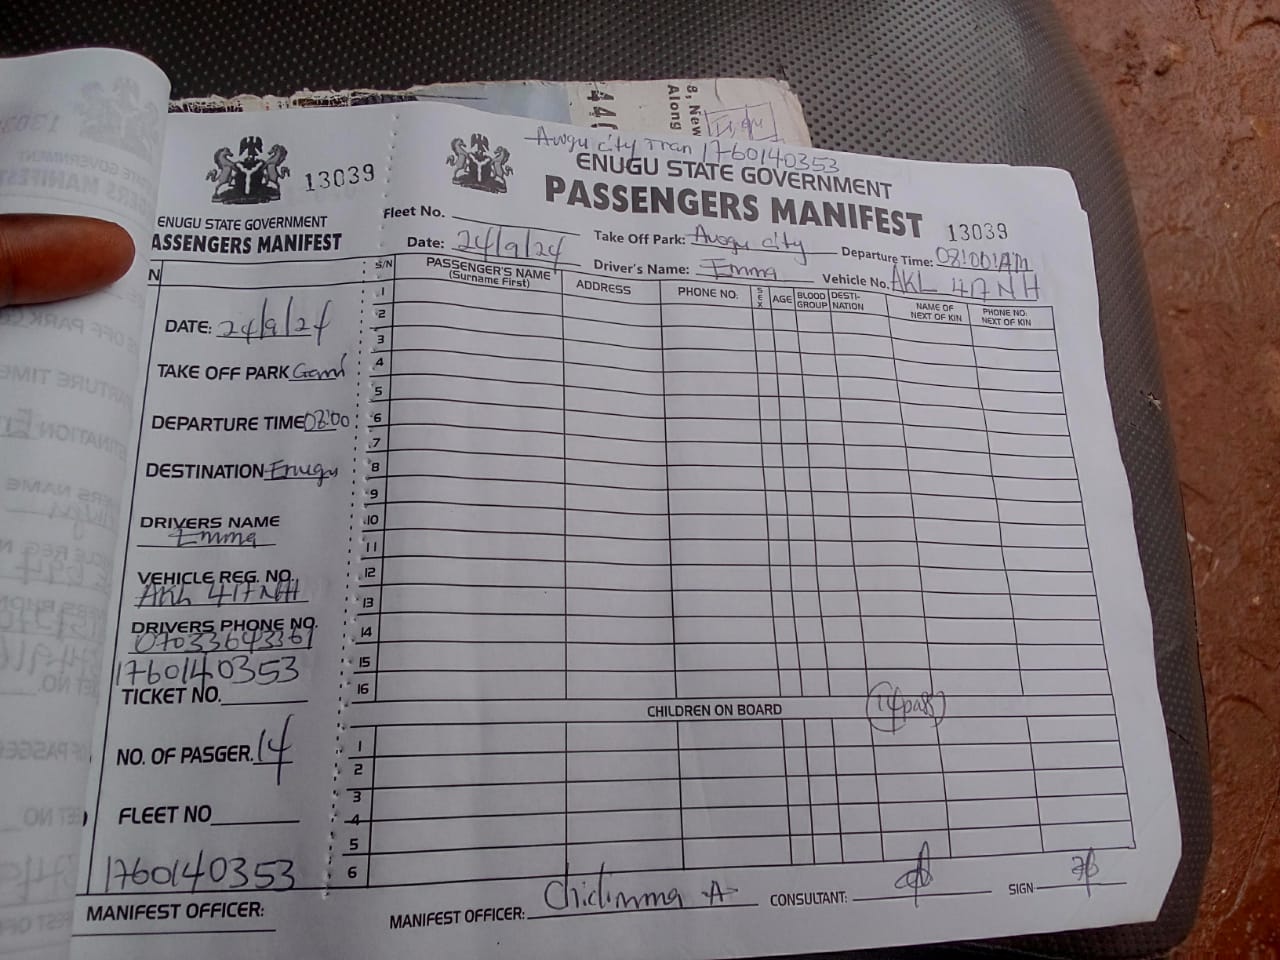 13039
ENUGU STATE GOVERNMENT
ASSENGERS MANIFEST
N
DATE: 24/9/24
TAKE OFF PARK
DEPARTURE TIME 08:00
DESTINATION Enugu
DRIVERS NAME
Emma
VEHICLE REG. NO.
AKL 417 NH
DRIVERS PHONE NO.
07033643361
1760140353
TICKET NO.
NO. OF PASGER. 14
FLEET NO
1760140353
MANIFEST OFFICER:
8, New
Along
Awgu city Tran 1760140353
ENUGU STATE GOVERNMENT
PASSENGERS MANIFEST
13039
Fleet No.
Date: 24/9/24 Take Off Park: Awgu city Departure Time: 08:00AM
Driver's Name: Emma Vehicle No. AKL 417 NH
S/N PASSENGER'S NAME (Surname First) ADDRESS PHONE NO. SEX AGE BLOOD GROUP DESTI-NATION NAME OF NEXT OF KIN PHONE NO. NEXT OF KIN
1
2
3
4
5
6
7
8
9
10
11
12
13
14
15
16
CHILDREN ON BOARD 14pass
1
2
3
4
5
6
MANIFEST OFFICER: Chidimma A CONSULTANT: SIGN